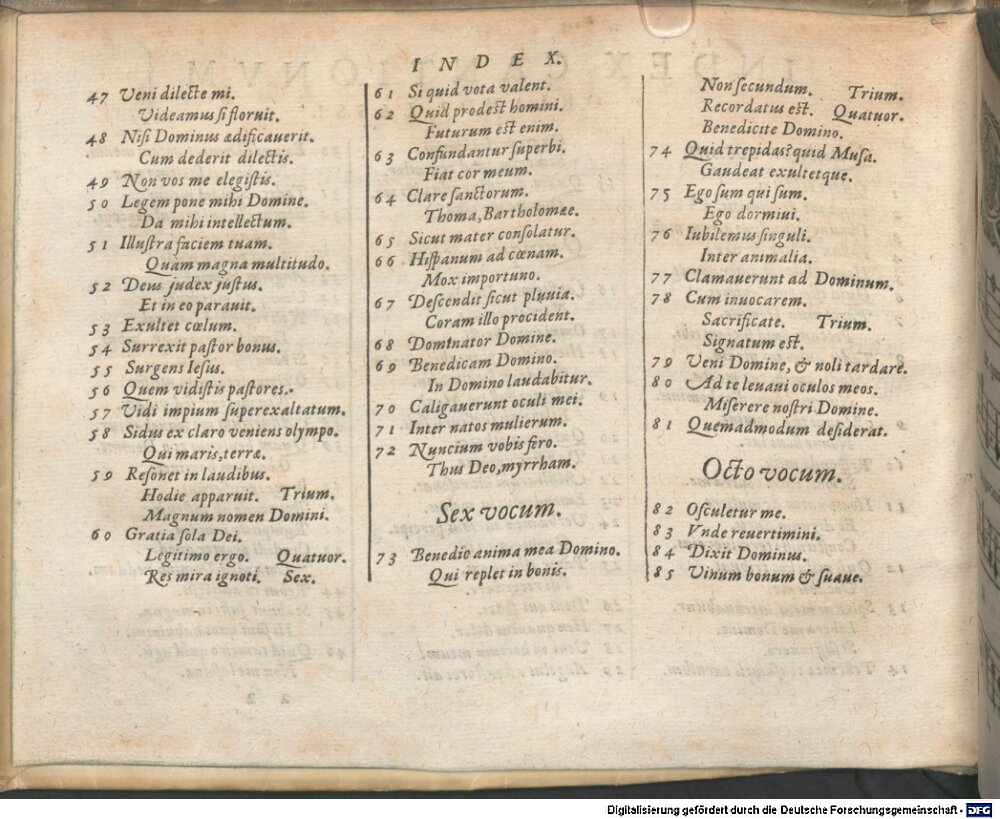 INDEX.
47 Veni dilecte mi.
Videamus si floruit.
48 Nisi Dominus ædificauerit.
Cum dederit dilectis.
49 Non vos me elegistis.
50 Legem pone mihi Domine.
Da mihi intellectum.
51 Illustra faciem tuam.
Quam magna multitudo.
52 Deus judex justus.
Et in eo parauit.
53 Exultet cœlum.
54 Surrexit pastor bonus.
55 Surgens Iesus.
56 Quem vidistis pastores.
57 Vidi impium superexaltatum.
58 Sidus ex claro veniens olympo.
Qui maris, terræ.
59 Resonet in laudibus.
Hodie apparuit. Trium.
Magnum nomen Domini.
60 Gratia sola Dei.
Legitimo ergo. Quatuor.
Res mira ignoti. Sex.
61 Si quid vota valent.
62 Quid prodest homini.
Futurum est enim.
63 Confundantur superbi.
Fiat cor meum.
64 Clare sanctorum.
Thoma, Bartholomæe.
65 Sicut mater consolatur.
66 Hispanum ad cœnam.
Mox importuno.
67 Descendit sicut pluuia.
Coram illo procident.
68 Domtnator Domine.
69 Benedicam Domino.
In Domino laudabitur.
70 Caligauerunt oculi mei.
71 Inter natos mulierum.
72 Nuncium vobis fero.
Thus Deo, myrrham.
Sex vocum.
73 Benedic anima mea Domino.
Qui replet in bonis.
Non secundum. Trium.
Recordatus est. Quatuor.
Benedicite Domino.
74 Quid trepidas? quid Musa.
Gaudeat exultetque.
75 Ego sum qui sum.
Ego dormiui.
76 Iubilemus singuli.
Inter animalia.
77 Clamauerunt ad Dominum.
78 Cum inuocarem.
Sacrificate. Trium.
Signatum est.
79 Veni Domine, & noli tardare.
80 Ad te leuaui oculos meos.
Miserere nostri Domine.
81 Quemadmodum desiderat.
Octo vocum.
82 Osculetur me.
83 Vnde reuertimini.
84 Dixit Dominus.
85 Vinum bonum & suaue.
Digitalisierung gefördert durch die Deutsche Forschungsgemeinschaft - DFG